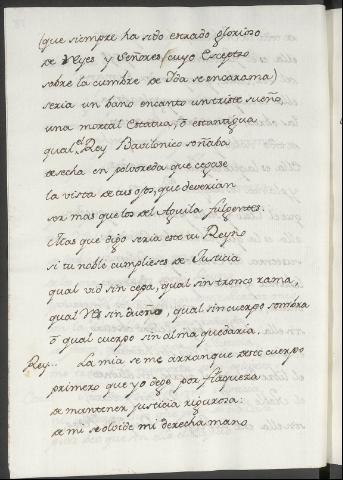 (que siempre ha sido estrado glorioso
de Reyes y Señores (cuyo Esceptro
sobre la cumbre de Ida se encarama)
seria un vano encanto un triste sueño,
una mortal estatua, ò estantigua
qual el Rey Bavilonico soñaba
desecha en polvoreda que cegase
la vista de tus ojos, que deverian
ser mas que los del Aguila fulgentes.
Mas que digo seria este tu Reyno
si tu noble cumplieses de Justicia
qual vid sin cepa, qual sin tronco rama,
qual sin dueño, qual sin cuerpo sombra
ò qual cuerpo sin alma quedaria.
Rey... La mia se me arranque deste cuerpo
primero que yo dege por flaqueza
de mantener justicia rigurosa:
de mi se olvide mi derecha mano